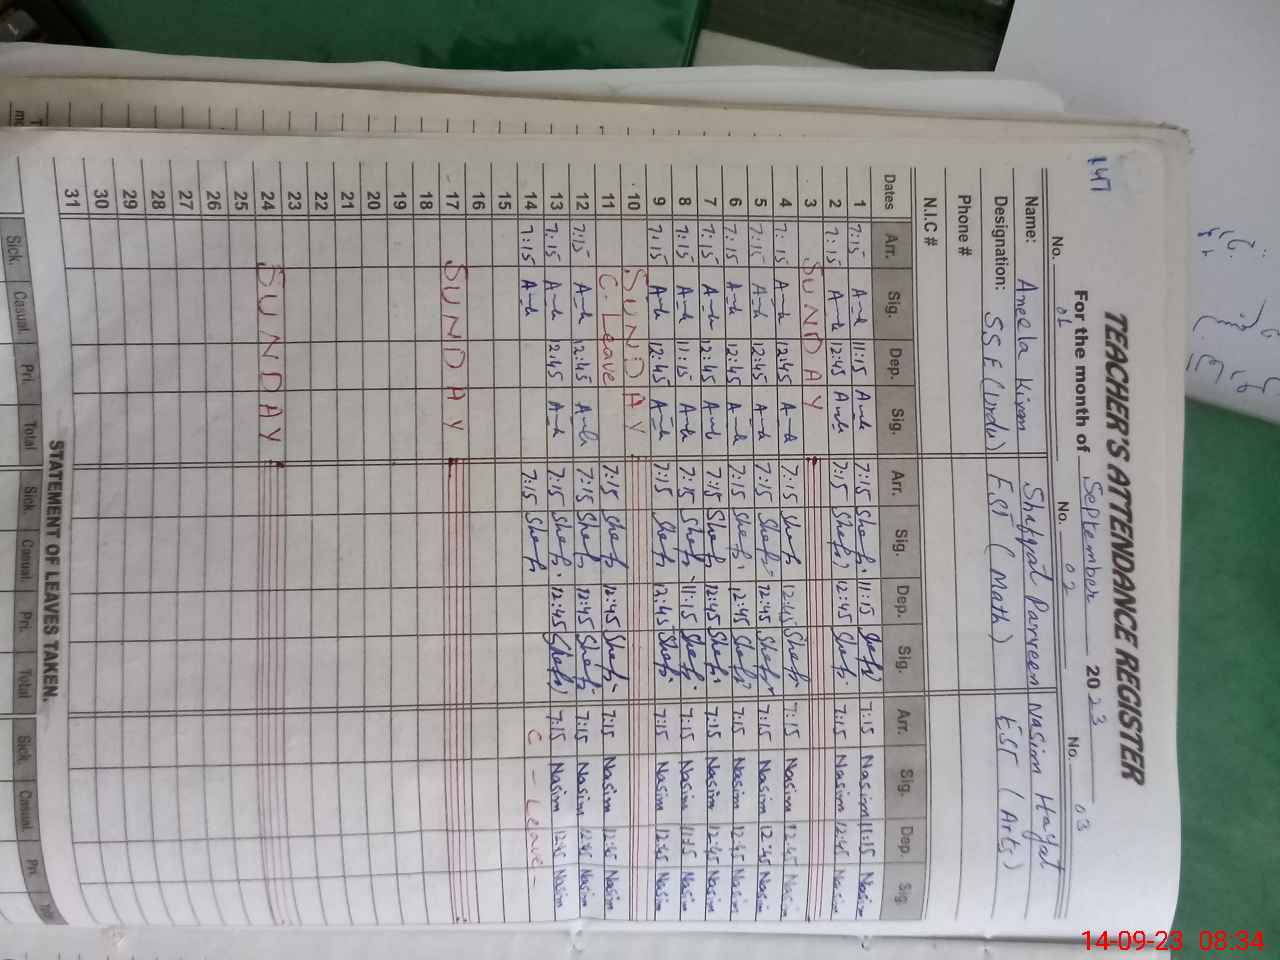 147
TEACHER'S ATTENDANCE REGISTER
For the month of September 2023
No. 01 No. 02 No. 03
Name: Aneela Kiran Shafqat Parveen Nasim Hayat
Designation: SSE (Urdu) EST (Math) EST (Arts)
Phone #
N.I.C #
Dates Arr. Sig. Dep. Sig. Arr. Sig. Dep. Sig. Arr. Sig. Dep. Sig.
1 7:15 11:15 7:15 Shafq 11:15 Shafq 7:15 Nasim 11:15 Nasim
2 7:15 12:45 7:15 Shafq 12:45 Shafq 7:15 Nasim 12:45 Nasim
3 SUNDAY
4 7:15 12:45 7:15 Shafq 12:45 Shafq 7:15 Nasim 12:45 Nasim
5 7:15 12:45 7:15 Shafq 12:45 Shafq 7:15 Nasim 12:45 Nasim
6 7:15 12:45 7:15 Shafq 12:45 Shafq 7:15 Nasim 12:45 Nasim
7 7:15 12:45 7:15 Shafq 12:45 Shafq 7:15 Nasim 12:45 Nasim
8 7:15 11:15 7:15 Shafq 11:15 Shafq 7:15 Nasim 11:15 Nasim
9 7:15 12:45 7:15 Shafq 12:45 Shafq 7:15 Nasim 12:45 Nasim
10 SUNDAY
11 C. Leave 7:15 Shafq 12:45 Shafq 7:15 Nasim 12:45 Nasim
12 7:15 12:45 7:15 Shafq 12:45 Shafq 7:15 Nasim 12:45 Nasim
13 7:15 12:45 7:15 Shafq 12:45 Shafq 7:15 Nasim 12:45 Nasim
14 7:15 7:15 Shafq C - Leave -
15
16
17 SUNDAY
18
19
20
21
22
23
24 SUNDAY
25
26
27
28
29
30
31
STATEMENT OF LEAVES TAKEN.
Sick. Casual. Pri. Total Sick. Casual. Pri. Total Sick. Casual. Pri.
14-09-23 08:34